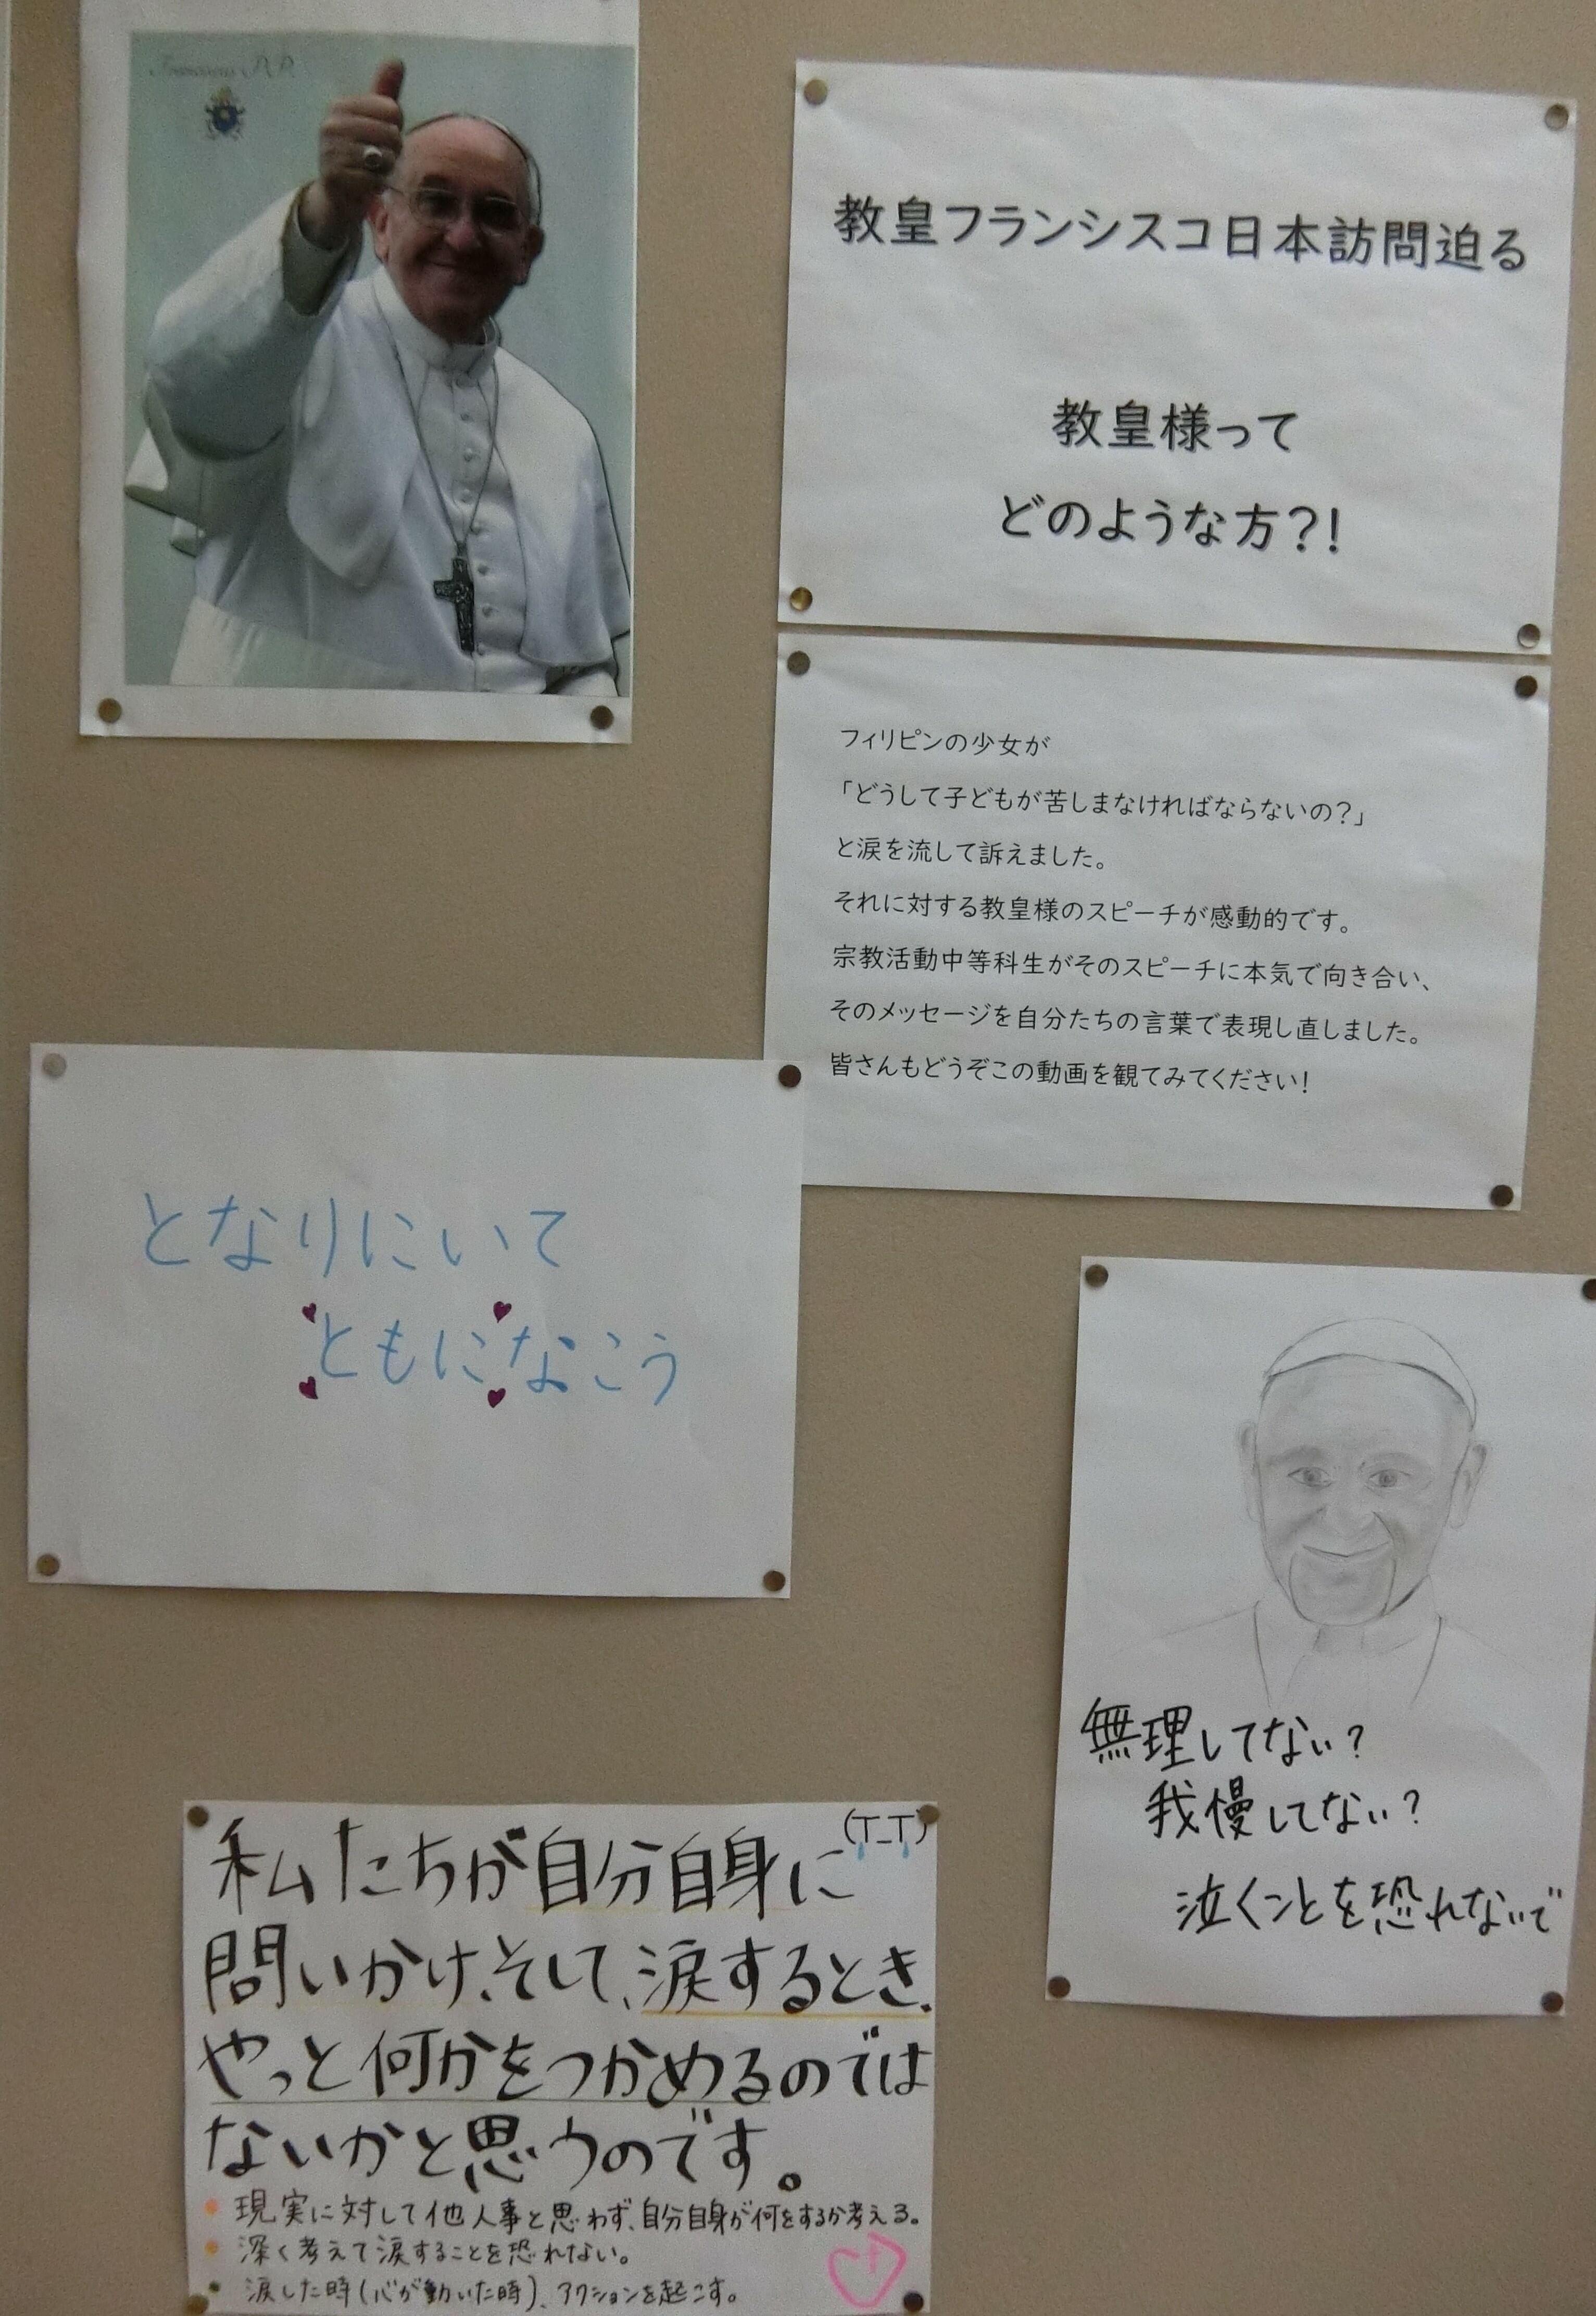 Franciscus P.P.
教皇フランシスコ日本訪問迫る
教皇様って
どのような方?!
フィリピンの少女が
「どうして子どもが苦しまなければならないの?」
と涙を流して訴えました。
それに対する教皇様のスピーチが感動的です。
宗教活動中等科生がそのスピーチに本気で向き合い、
そのメッセージを自分たちの言葉で表現し直しました。
皆さんもどうぞこの動画を観てみてください!
となりにいて
ともになこう
無理してない?
我慢してない?
泣くことを恐れないで
(T_T)
私たちが自分自身に
問いかけ、そして、涙するとき、
やっと何かをつかめるのでは
ないかと思うのです。
現実に対して他人事と思わず、自分自身が何をするか考える。
深く考えて涙することを恐れない。
涙した時(心が動いた時)、アクションを起こす。